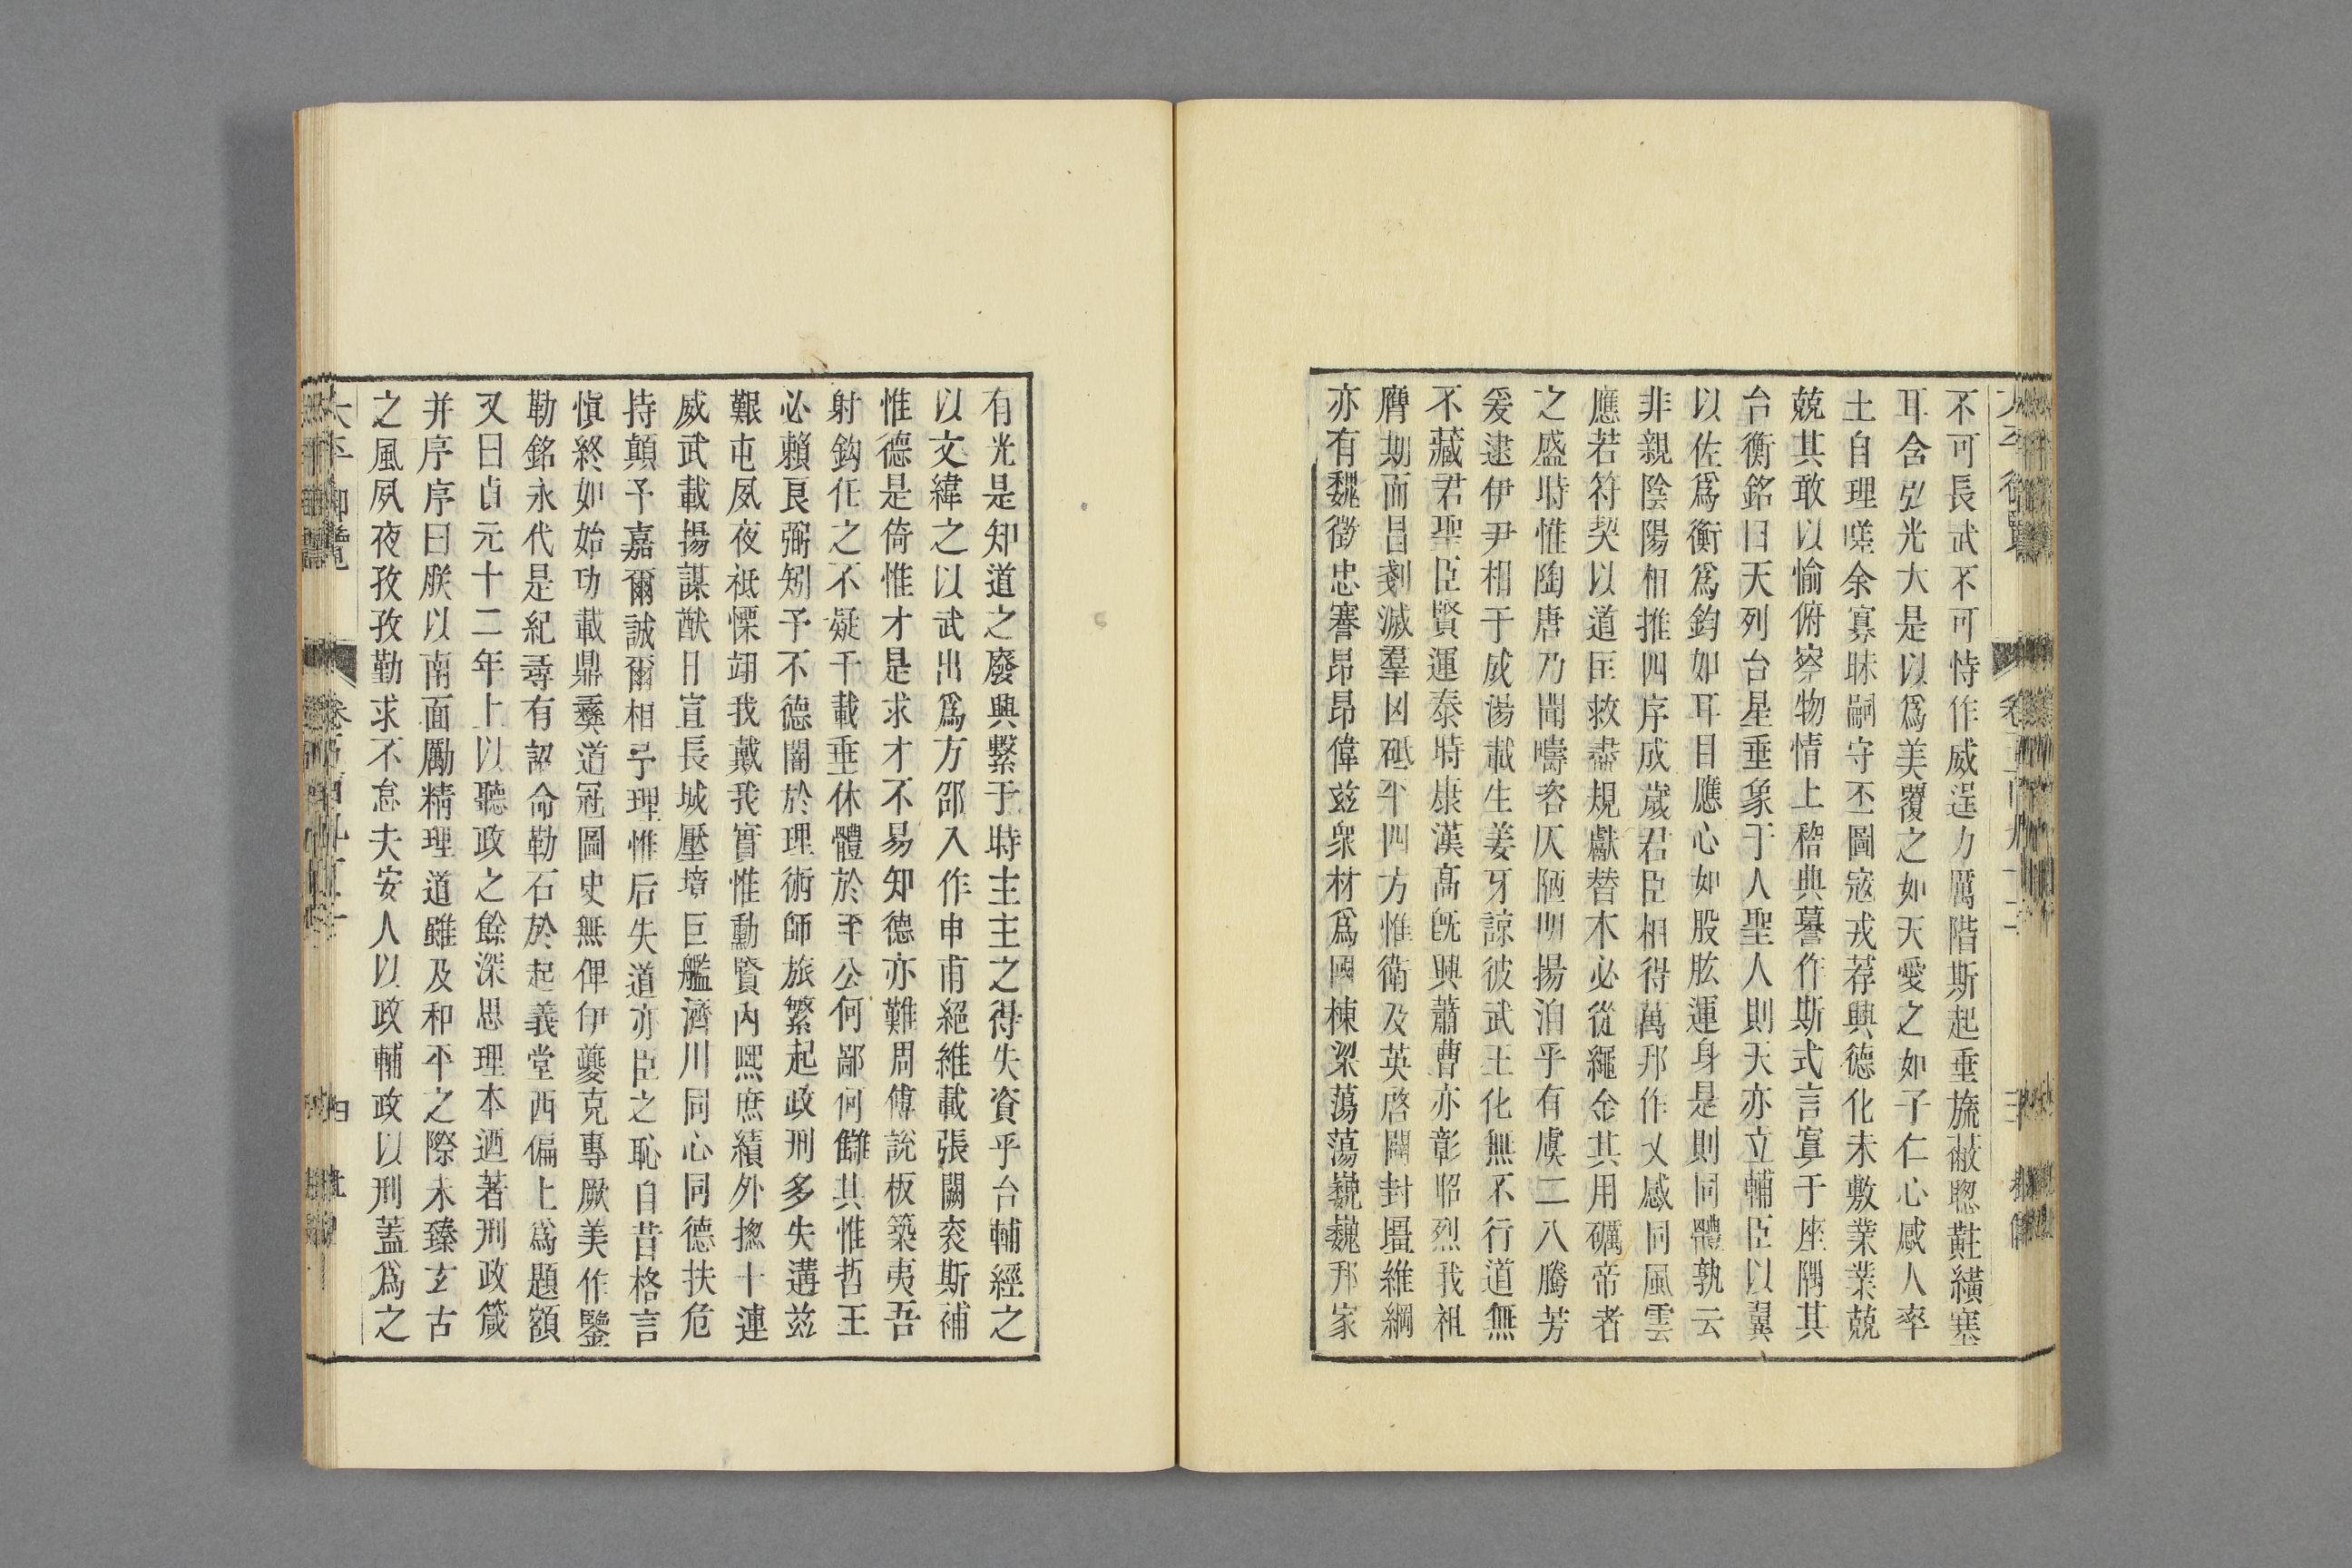 不可長武不可恃作威逞力厲階斯起垂旒蔽聦黈纊塞
耳含弘光大是以爲美覆之如天愛之如子仁心感人率
土自理嗟余寡昧嗣守丕圖寇戎荐興德化未敷業業兢
兢其敢以愉俯察物情上稽典謩作斯式言寘于座隅其
台衡銘曰天列台星垂象于人聖人則天亦立輔臣以翼
以佐爲衡爲鈞如耳目應心如股肱運身是則同體孰云
非親陰陽相推四序成歲君臣相得萬邦作乂感同風雲
應若符契以道匡救盡規獻替木必從繩金其用礪帝者
之盛時惟陶唐乃聞疇咨仄陋明揚洎乎有虞二八騰芳
爰逮伊尹相于成湯載生姜牙諒彼武王化無不行道無
不藏君聖臣賢運泰時康漢高旣興蕭曹亦彰昭烈我祖
膺期而昌剗滅羣凶砥平四方惟衛及英啓闢封疆維綱
亦有魏徵忠謇昂昂偉兹衆材爲國棟梁蕩蕩巍巍邦家
有光是知道之廢興繫于時主主之得失資乎台輔經之
以文緯之以武出爲方邵入作申甫絕維載張闕衮斯補
惟德是倚惟才是求才不易知德亦難周傅說板築夷吾
射鈎任之不疑千載垂休體於至公何鄙何讎其惟哲王
必賴良弼矧予不德闇於理術師旅繁起政刑多失遘兹
艱屯夙夜祇慄翊我戴我實惟勳賢內熙庶績外揔十連
威武載揚謀猷日宣長城壓境巨艦濟川同心同德扶危
持顛予嘉爾誠爾相予理惟后失道亦臣之恥自昔格言
愼終如始功載鼎彝道冠圖史無俾伊夔克專厥美作鑒
勒銘永代是紀尋有詔命勒石於起義堂西偏上爲題額
又曰貞元十二年上以聽政之餘深思理本迺著刑政箴
并序序曰朕以南面勵精理道雖及和平之際未臻玄古
之風夙夜孜孜勤求不怠夫安人以政輔政以刑蓋爲之